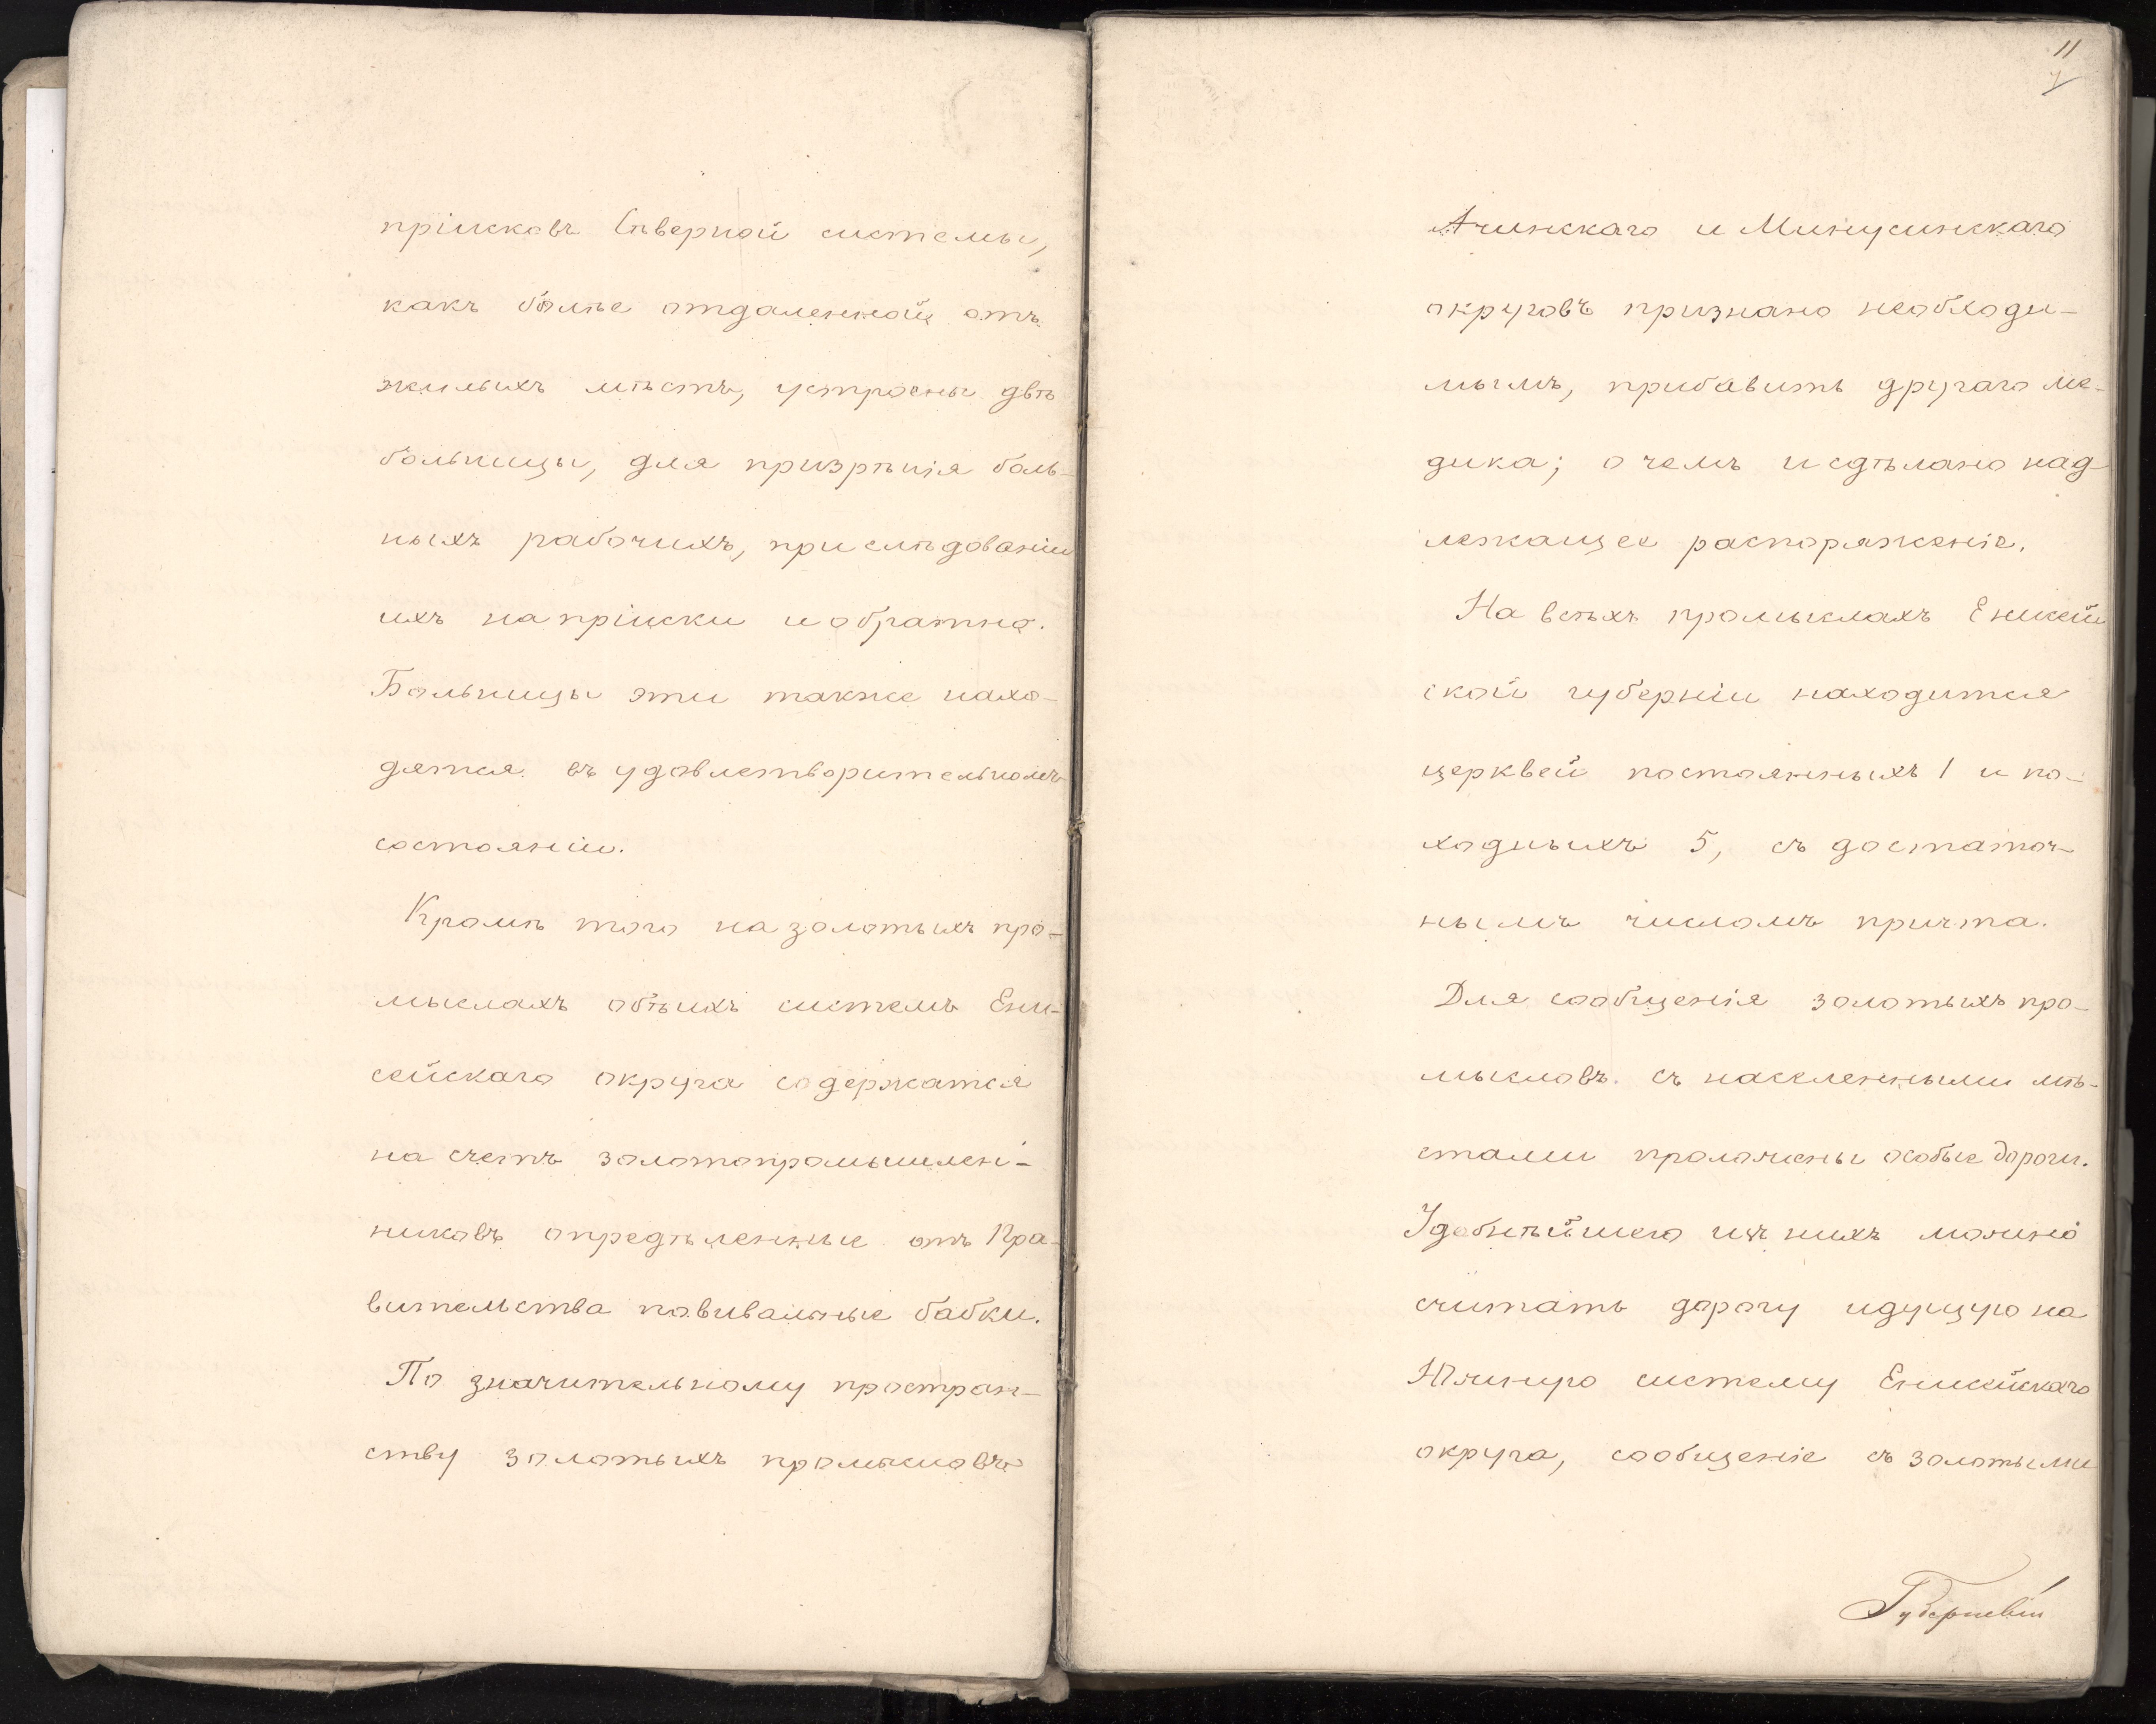 пріисковъ Сѣверной системы,
какъ болѣе отдаленной отъ
жилыхъ мѣстъ, устроены двѣ
больницы, для призрѣнія боль-
ныхъ рабочихъ, при слѣдованіи
ихъ на пріиски и обратно.
Больницы эти также нахо-
дятся въ удовлетворительномъ
состояніи.
Кромѣ того на золотыхъ про-
мыслахъ обѣихъ системъ Ени-
сейскаго округа содержатся
на счетъ золотопромышлен-
никовъ опредѣленные отъ Пра-
вительства повивальные бабки.
По значительному простран-
ству золотыхъ промысловъ
11
Ачинскаго и Минусинскаго
округовъ признано необходи-
мымъ, прибавить другаго ме-
дика; о чемъ и сдѣлано над-
лежащее распоряженіе.
На всѣхъ промыслахъ Енисей
ской губерніи находится
церквей постоянныхъ 1 и по-
ходныхъ 5, съ достаточ-
нымъ числомъ причта.
Для сообщенія золотыхъ про-
мысловъ съ населенными мѣ-
стами проложены особые дороги.
Удобнѣйшею изъ нихъ можно
считать дорогу идущую на
Южную систему Енисейскаго
округа, сообщеніе съ золотыми